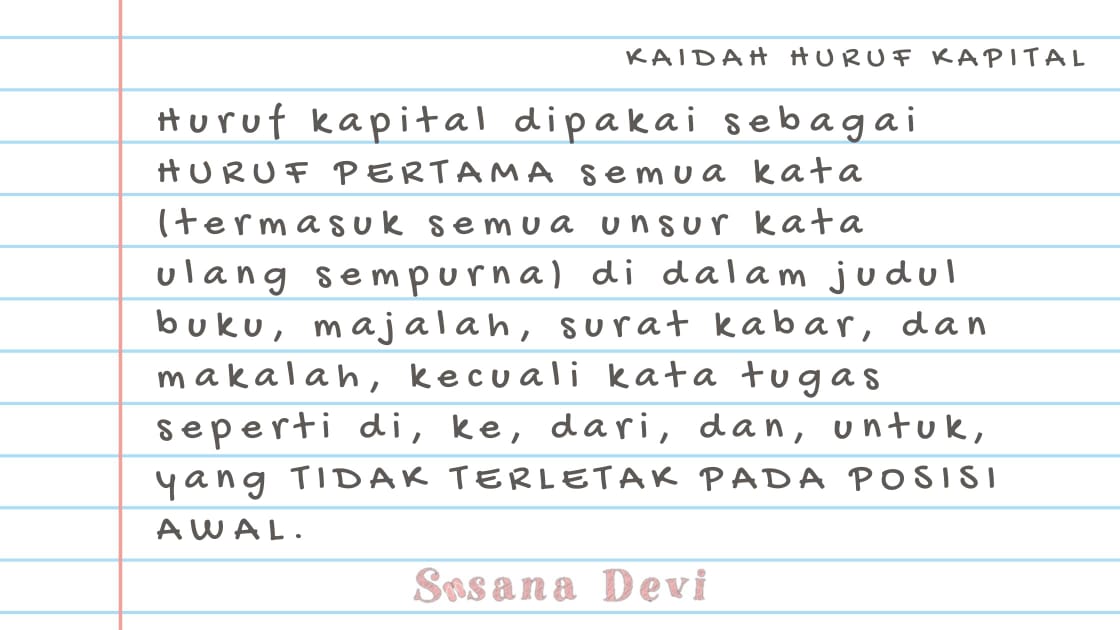 KAIDAH HURUF KAPITAL
Huruf kapital dipakai sebagai
HURUF PERTAMA semua kata
(termasuk semua unsur kata
ulang sempurna) di dalam judul
buku, majalah, surat kabar, dan
makalah, kecuali kata tugas
seperti di, ke, dari, dan, untuk,
yang TIDAK TERLETAK PADA POSISI
AWAL.
Susana Devi